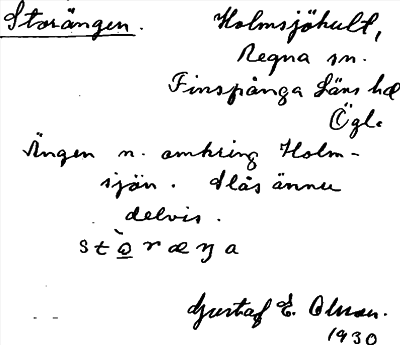 Storängen. Holmsjöhult,
Regna sn.
Finspånga läns hd
Ögl.
Ängen n. omkring Holm-
sjön. Slås ännu
delvis.
stὼræŋa
Gustaf E. Olsson.
1930